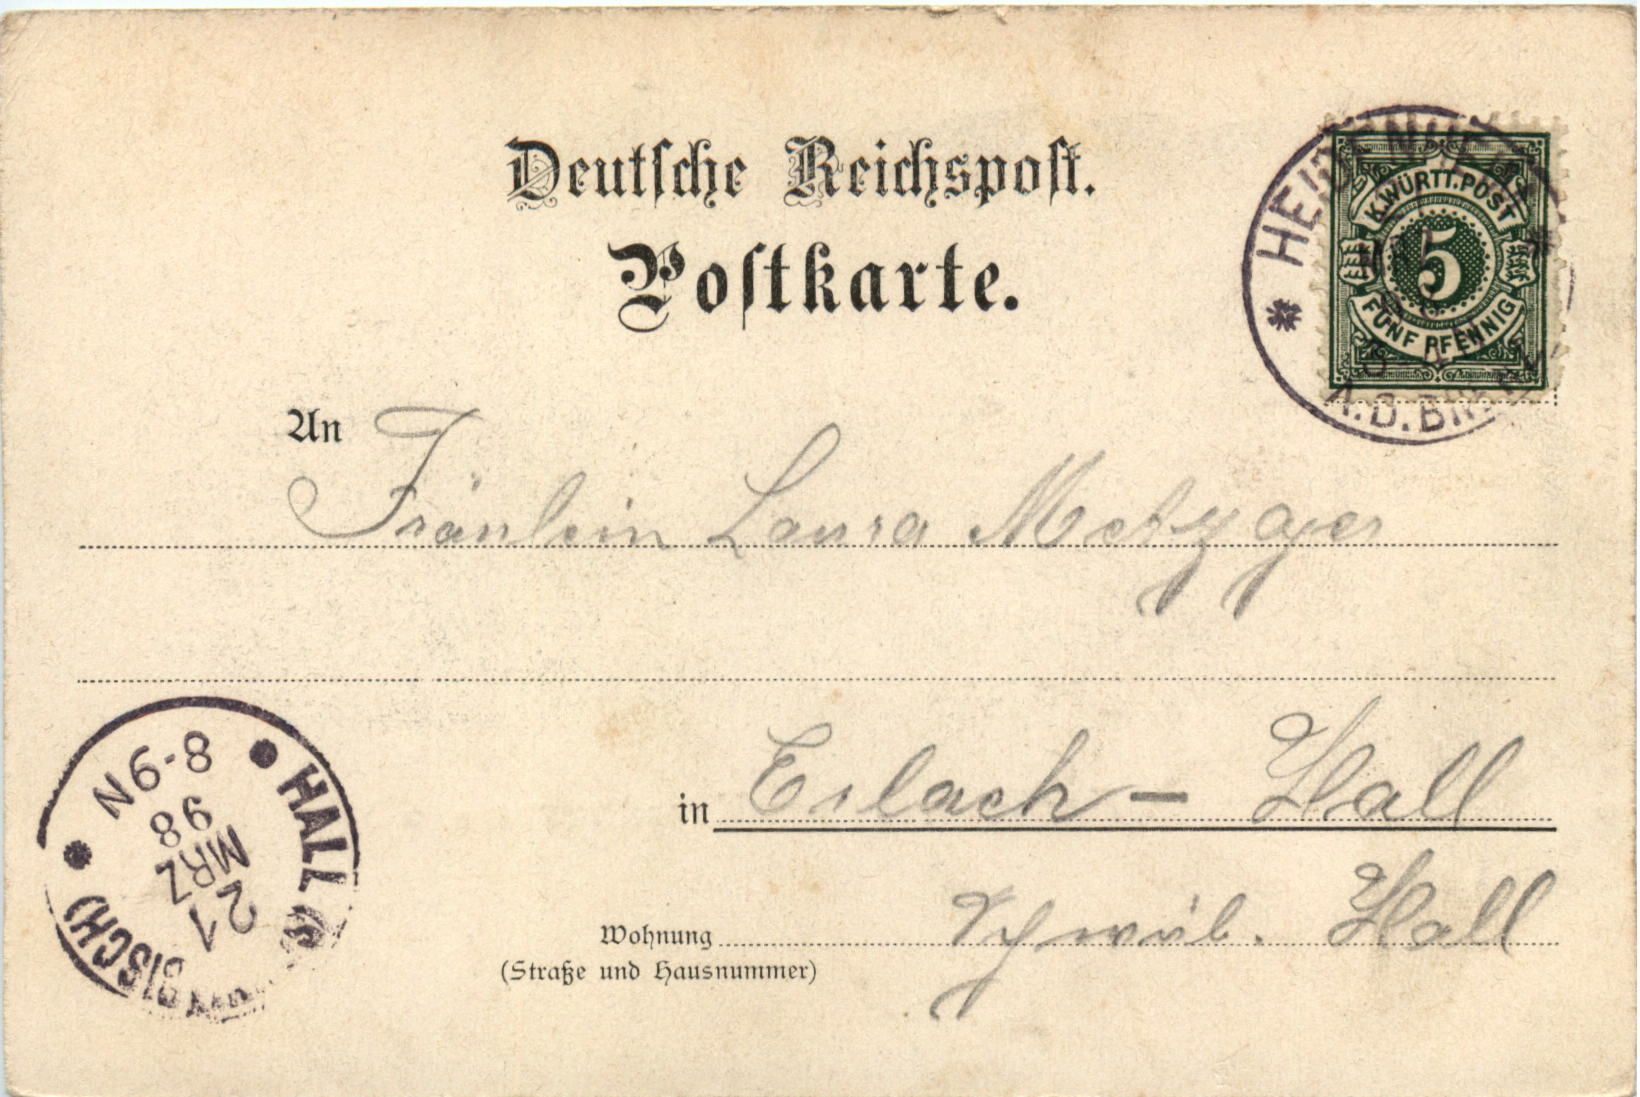 Deutsche Reichspost.
Postkarte.
K.WÜRTT.POST
5
FÜNF PFENNIG
A.D.
An Fräulein Laura Metzger
in Erlach – Hall
Wohnung Schwäb. Hall
(Straße und Hausnummer)
HALL (
BISCH)
21
MRZ
98
8-9N